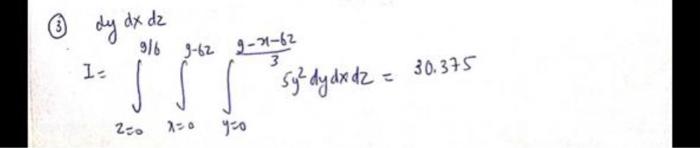 ③ dy dx dz
I = ∫_{z=0}^{9/6} ∫_{x=0}^{9-6z} ∫_{y=0}^{\frac{9-x-6z}{3}} 5y² dy dx dz = 30.375